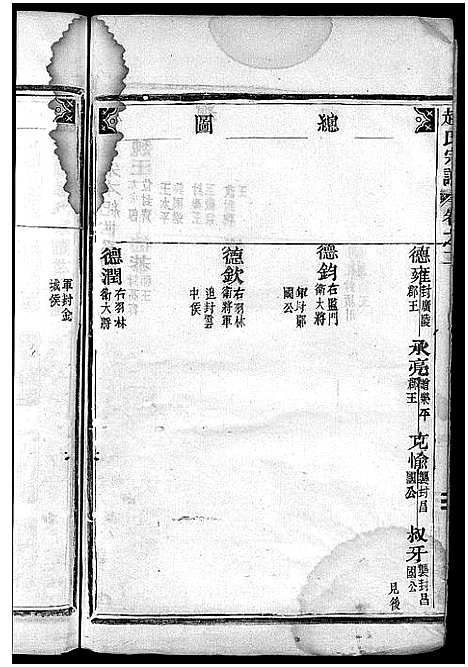 趙氏宗譜 卷之二
總圖
德雍 封廣陵郡王
承亮 贈樂平郡王
克愉 襲封昌國公
叔牙 襲封昌國公
見後
德鈞 右監門衛大將軍封鄭國公
德欽 右羽林衛將軍追封雲中侯
德潤 右羽林衛大將
軍封金城侯